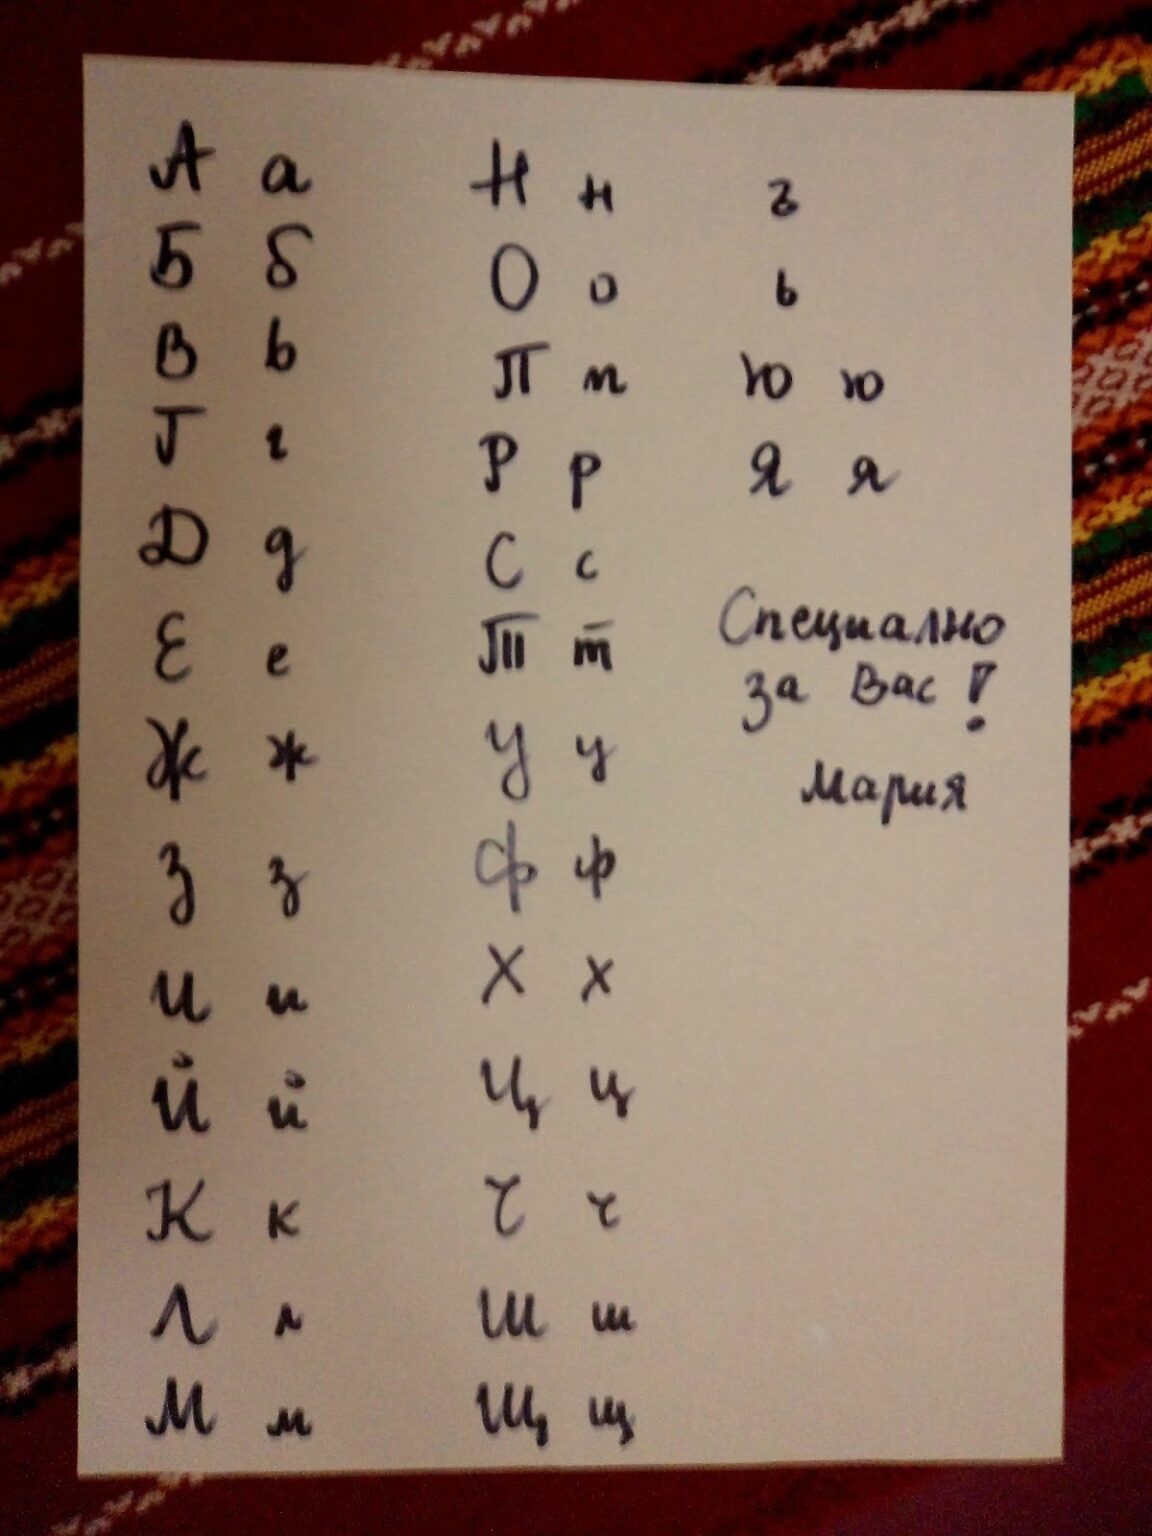 А а
Б б
В в
Г г
Д д
Е е
Ж ж
З з
И и
Й й
К к
Л л
М м
Н н
О о
П п
Р р
С с
Т т
У у
Ф ф
Х х
Ц ц
Ч ч
Ш ш
Щ щ
ъ
ь
Ю ю
Я я
Специално
за Вас!
Мария